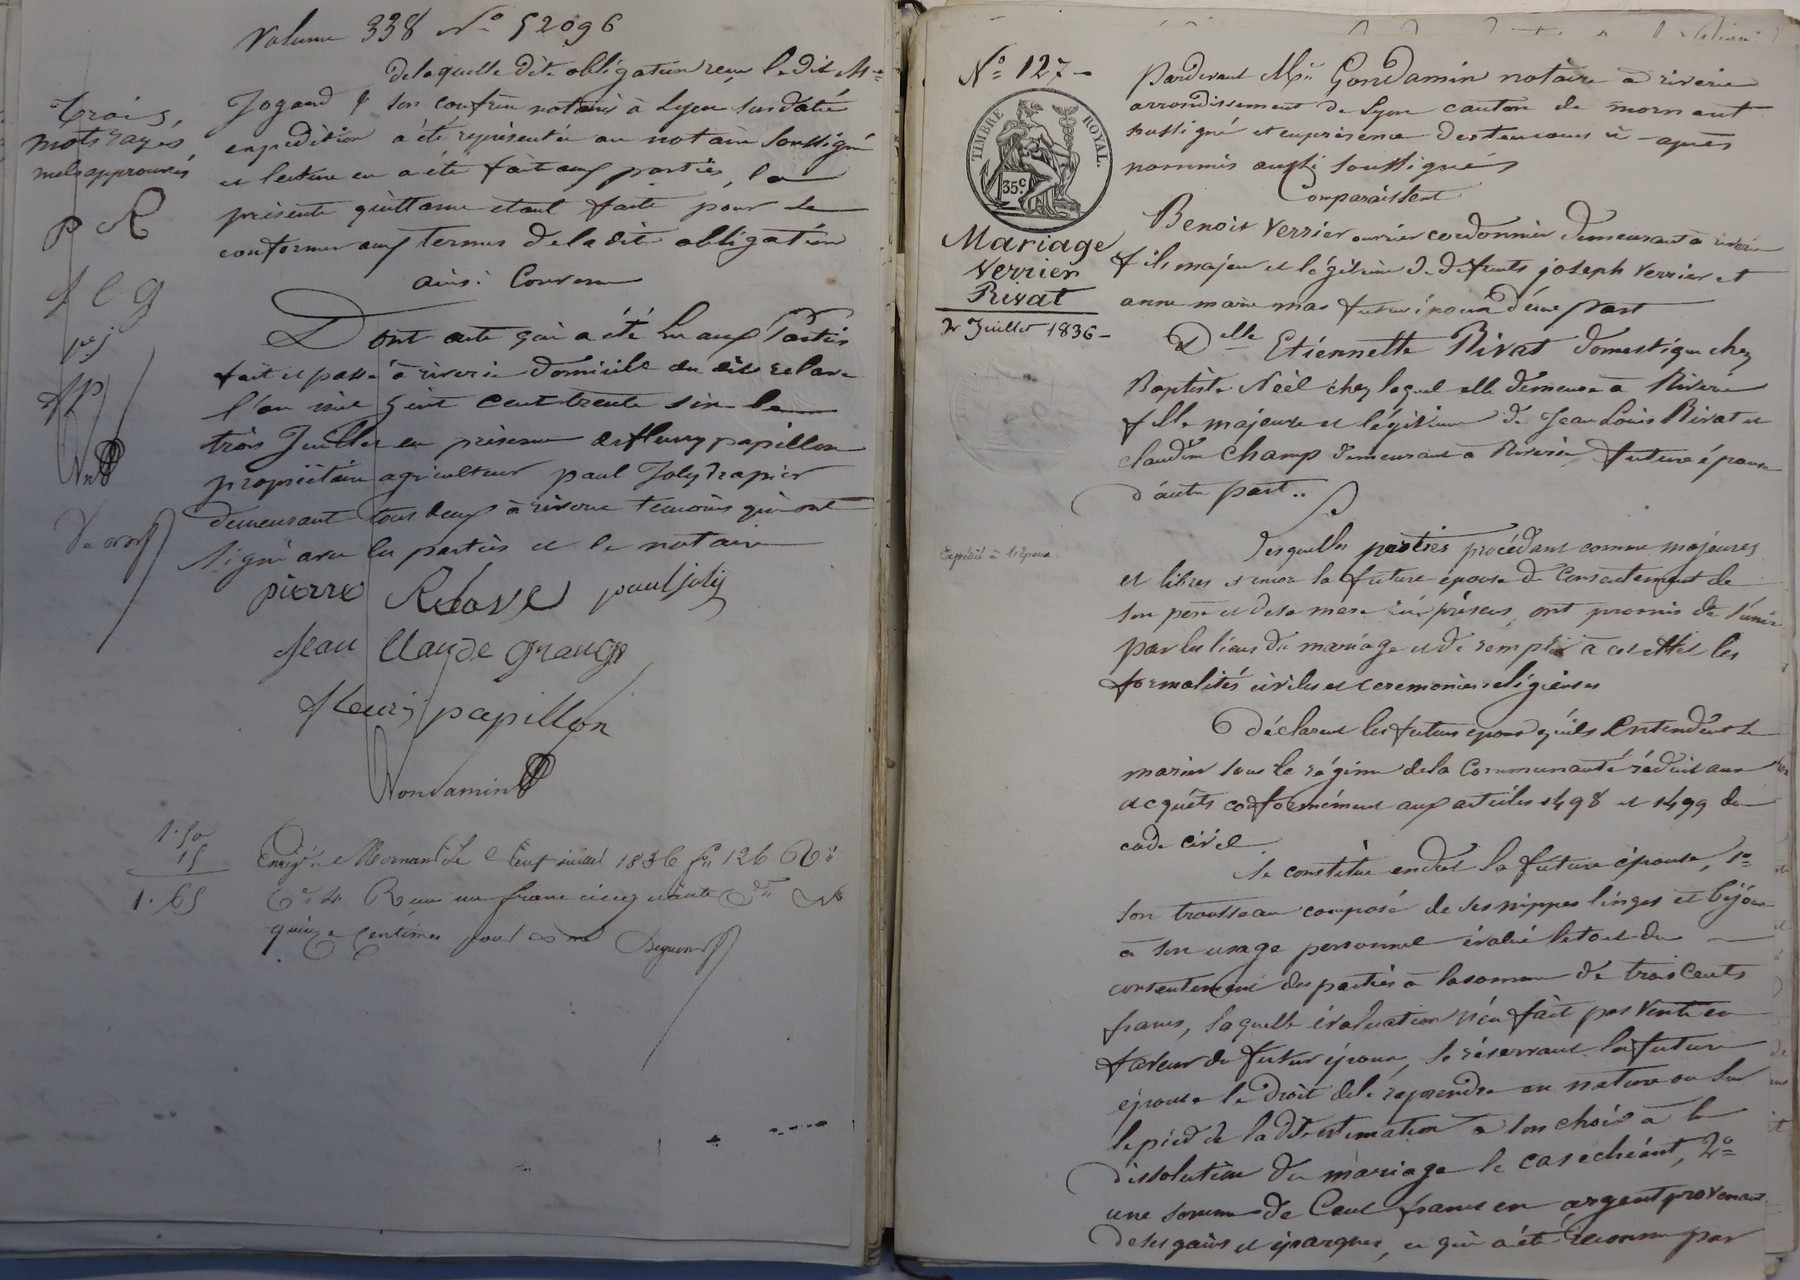 Volume 338 No 52096
de laquelle dite obligation reçu le dit Me
Jogand & son confrère notaires à Lyon susdatée
expédition a été représentée au notaire soussigné
et lecture en a été faite aux parties, la
présente quittance étant faite pour se
conformer aux termes de la dite obligation
ainsi convenu
Dont acte qui a été lu aux Parties
fait et passé à riverie domicile du dit relave
l'an mil huit cent trente six le
trois Juillet en présence de fleury papillon
propriétaire agriculteur paul Joly drapier
demeurant tous deux à riverie temoins qui ont
signé avec les parties et le notaire
trois
mots rayés
nuls approuvés
P R
J C G
pp j
f P
pierre Relave paul joly
Jean Claude grange
fleury papillon
Gondamin
1.50
15
1.65
Enregé à Mornant le neuf juillet 1836 fo 126 Ro
Ce 4 Reçu un franc cinquante
quinze centimes pour
No 127
TIMBRE ROYAL.
35c
Mariage
Verrier
Rivat
3 Juillet 1836
Expédié à l'époux
Pardevant Me Gondamin notaire à riverie
arrondissement de Lyon canton de mornant
soussigné et en présence des temoins ci-après
nommés aussi soussignés
Comparaissent
Benoit Verrier ouvrier cordonnier demeurant à riverie
fils majeur et légitime de défunts joseph Verrier et
anne marie mas futur époux d'une part
Delle Etiennette Rivat domestique chez
Baptiste Noël chez lequel elle demeure à Riverie
fille majeure et légitime de Jean Louis Rivat et
claudine Champ demeurant à Riverie, future épouse
d'autre part..
Lesquelles parties procédant comme majeures
et libres et encore la future épouse du consentement de
son père et de sa mère ici présens, ont promis de s'unir
par les liens du mariage et de remplir à cet effet les
formalités civiles et ceremonies religieuses
déclarent les futurs époux qu'ils entendent se
marier sous le régime de la Communauté réduite aux
acquêts conformément aux articles 1498 et 1499 du
code civil
Se constitue en dot la future épouse, 1o
son trousseau composé de ses nippes linges et bijoux
à son usage personnel évalué le tout du
consentement des parties à la somme de trois Cents
francs, laquelle évaluation n'en fait pas Vente en
faveur du futur époux, se réservant la future
épouse le droit de le reprendre en nature ou sur
le pied de la dite estimation à son choix à la
dissolution du mariage le cas échéant, 2o
une somme de Cent francs en argent provenant
de ses gains et épargnes, ce qui a été reconnu par